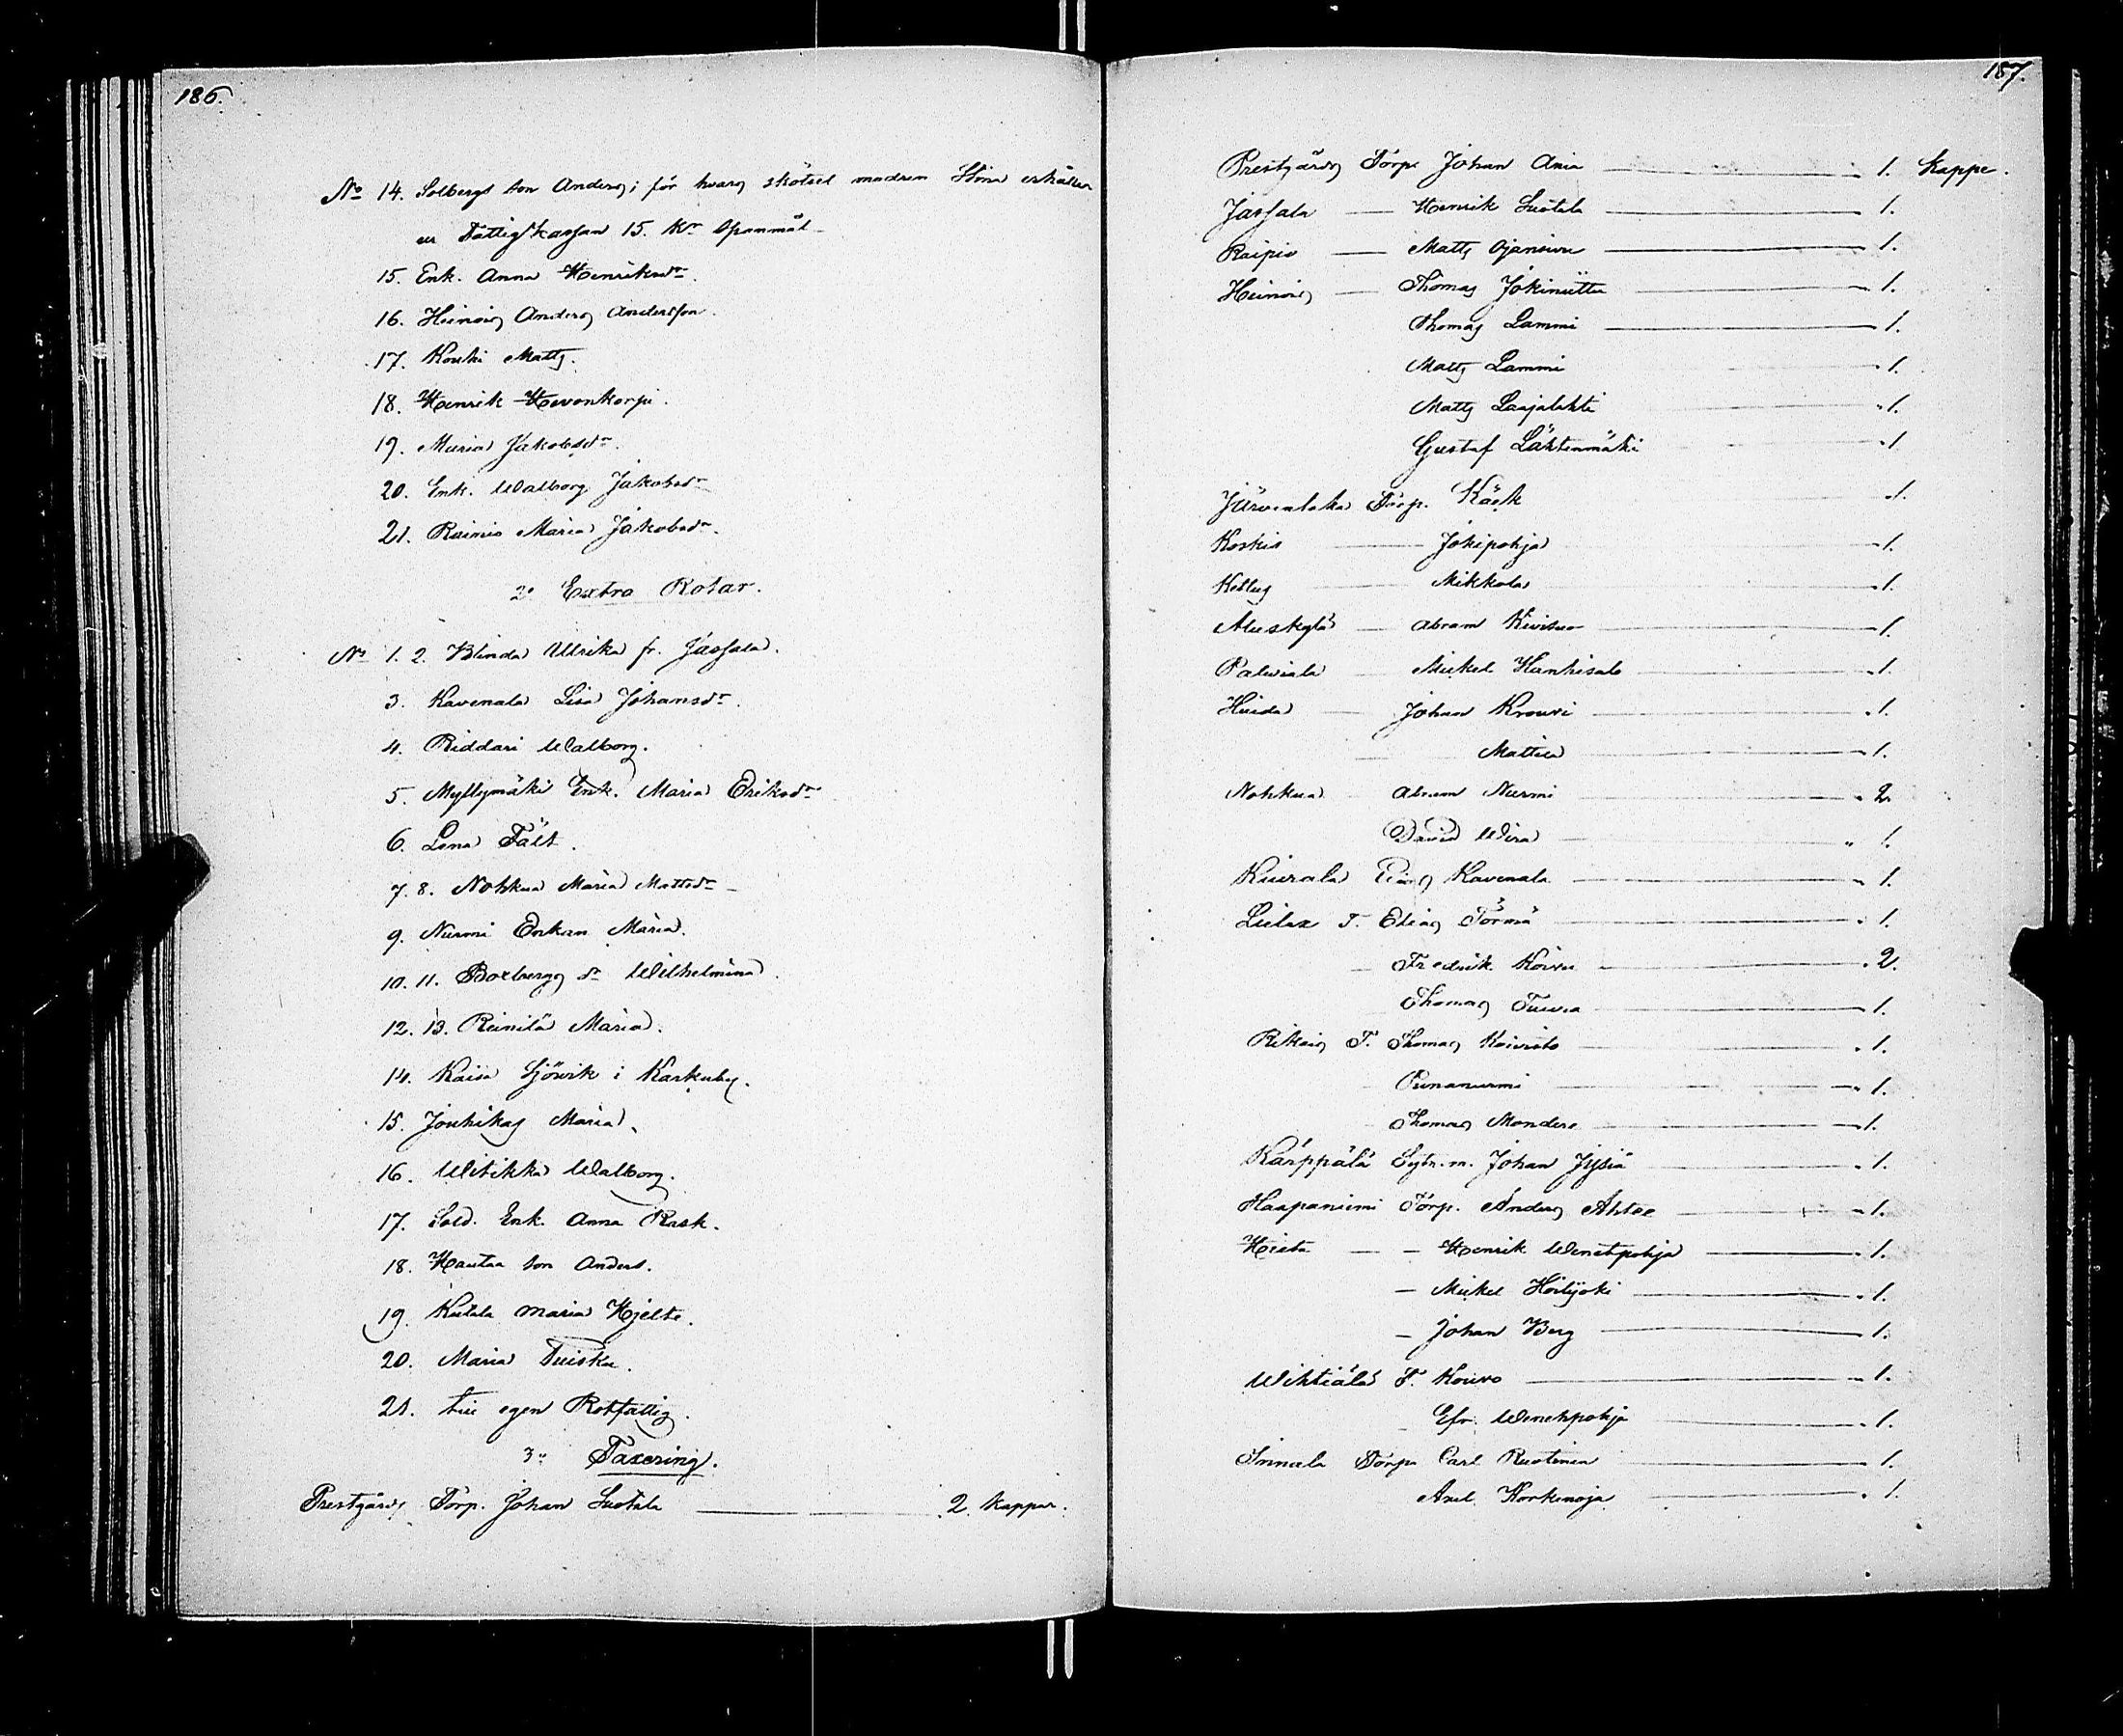 186.
No 14. Solbergs son Anders; för hvars skötsel modren Stina erhåller
ur Fattigkassan 15. Kr Spanmål
15. Enk. Anna Henriksdr.
16. Heinois Anders Andersson.
17. Kouhi Matts.
18. Henrik Hevonkorpi.
19. Maria Jakobsdr.
20. Enk. Walborg Jakobsdr
21. Raimio Maria Jakobsdr.
2o Extra Rotar.
No 1. 2. Blinda Ullrika fr. Jassala.
3. Kavenala Lisa Johansdr.
4. Riddari Walborg.
5. Myllymäki Enk. Maria Eriksdr
6. Lena Fält.
7. 8. Nohkua Maria Mattsdr
9. Nurmi Enkan Maria.
10. 11. Boxbergs dr Wilhelmina.
12. 13. Reinilä Maria.
14. Kaisa Sjövik i Karkuby.
15. Jouhikas Maria.
16. Witikka Walborg.
17. Sold. Enk. Anna Rask.
18. Hautaa son Anders.
19. Kutala Maria Hjelte.
20. Maria Tuisku.
21. till egen Rotfattig.
3o Taxering.
Prestgårds Torp. Johan Suotala 2. Kappar.
187.
Prestgårds Torp. Johan Ania 1. Kappe.
Jassala Henrik Suotala 1.
Raipio Matts Ojansivu 1.
Heinois Thomas Jokiniitty 1.
Thomas Lammi 1.
Matts Lammi 1.
Matts Laajalahti 1.
Gustaf Lähtenmäki 1.
Järventaka Torp. Käck 1.
Koskis Jokipohja 1.
Kettus Mikkola 1.
Aluskylä Abram Kivisuo 1.
Palviala Mickel Hanhisalo 1.
Huida Johan Krouvi 1.
Mattila 1.
Nohkua Abram Nurmi 2.
David Wira 1.
Kiurala Elias Kavenala 1.
Lielax T. Elias Törmä 1.
Fredrik Koivu 2.
Thomas Tuura 1.
Ritkais T. Thomas Koivisto 1.
Punanurmi 1.
Thomas Mondere 1.
Kärppälä Sytn.m. Johan Jysiä 1.
Haapaniemi Torp. Anders Ahtee 1.
Hieta Henrik Wenehpohja 1.
Mickel Höilijoki 1.
Johan Berg 1.
Wihtiälä T. Kouvo 1.
Efr. Wenehpohja 1.
Innala Torp. Carl Ruotinen 1.
Axel Korkinoja 1.